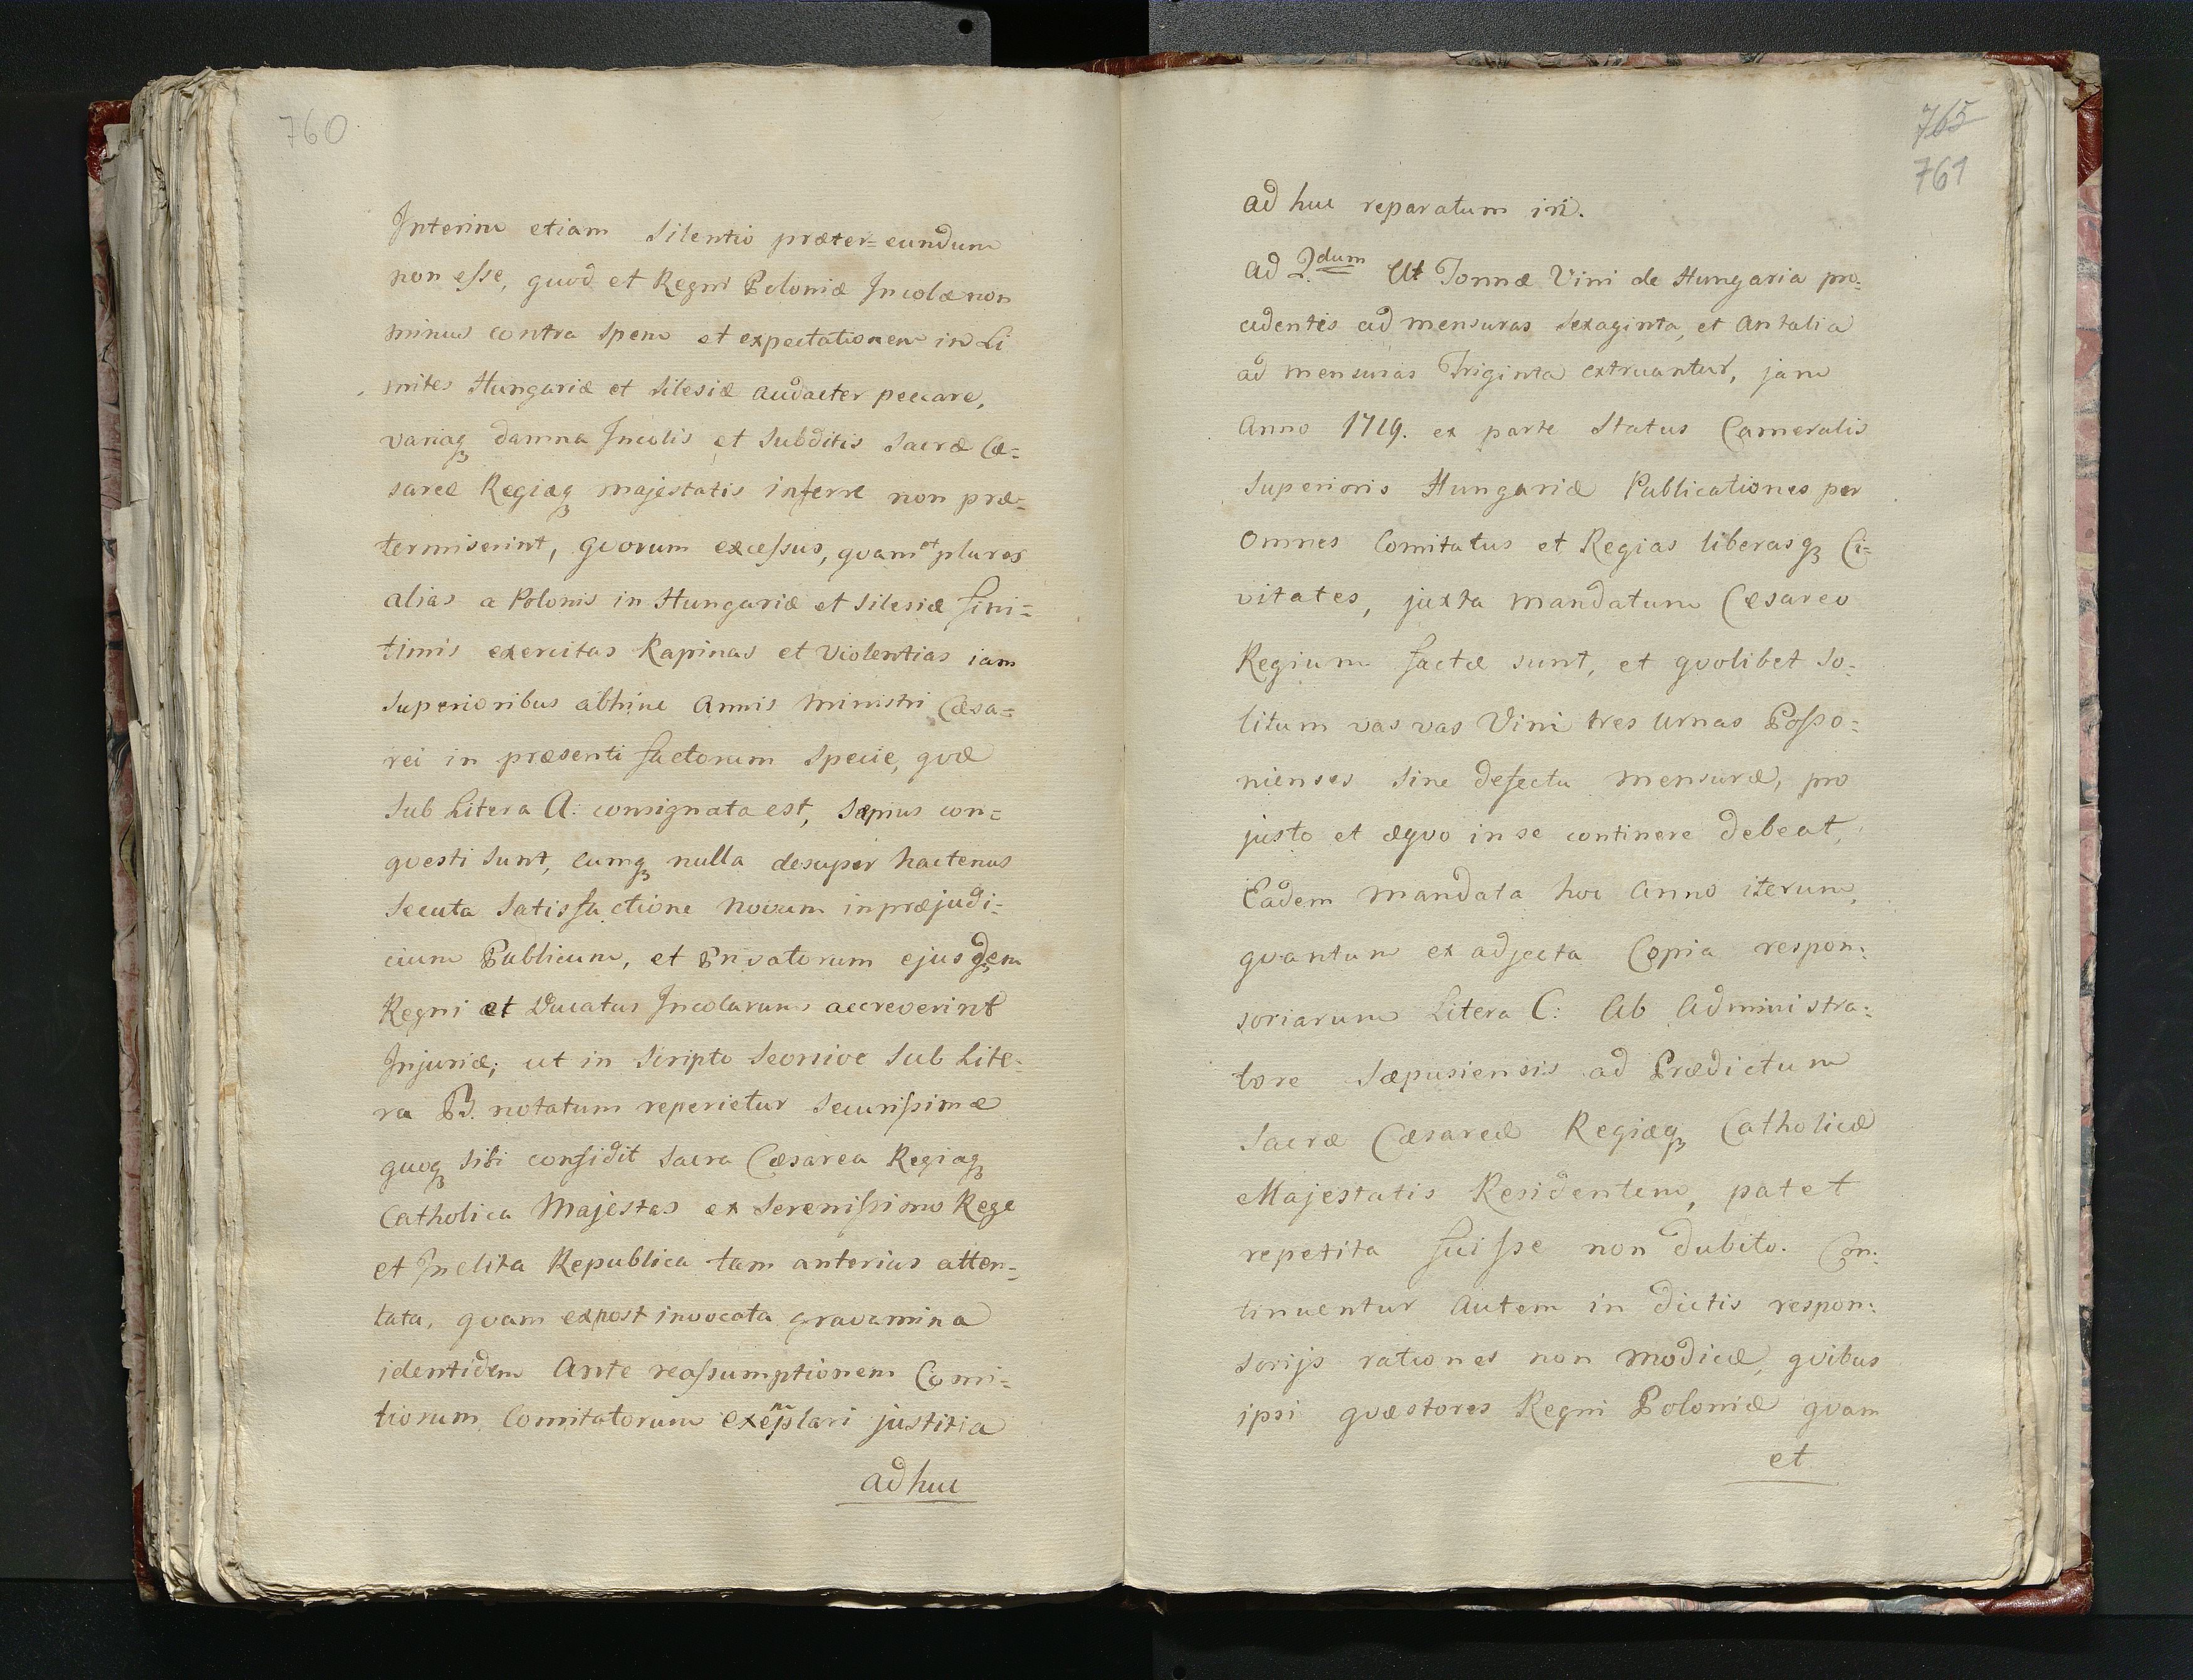 760
Interim etiam silentio præter=eundum
non esse, quod et Regni Poloniæ Incolæ non
minus contra spem et expectationem in Li
mites Hungariæ et Silesiæ audacter peccare,
variaq3 damna Incolis et Subditis Sacræ Cæ=
sareæ Regiæq3 majestatis inferre non præ=
termiserint, qvorum excessus, qvam et plures
alias a Polonis in Hungariæ et Silesiæ fini=
timis exercitas Rapinas et Violentias iam
superioribus abhinc annis ministri Cæsa=
rei in præsenti factorum specie, qvæ
sub Litera A: consignata est, sæpius con=
qvesti sunt, cumq3 nulla desuper hactenus
secuta satisfactione novum in præjudi=
cium Publicum, et Privatorum ejusdem
Regni et Ducatus Incolarum accreverint
Injuriæ; ut in scripto seorsive sub Lite=
ra B. notatum reperietur securissime
quoq3 sibi confidit Sacra Cæsarea Regiaq3
Catholica Majestas ex Serenissimo Rege
et Inclita Republica tam anterius atten=
tata, qvam expost invocata gravamina
identidem ante reassumptionem Comi=
tiorum Comitatorum exemplari justitia
adhuc
765
761
ad huc reparatum iri.
Ad 2.dum Ut Tonnæ Vini de Hungaria pro=
cedentis ad mensuras sexaginta, et Antalia
ad mensuras Triginta extruantur, jam
Anno 1719. ex parte Status Cameralis
Superioris Hungariæ Publicationes per
omnes Comitatus et Regias liberasq3 Ci=
vitates, juxta mandatum Cæsareo
Regium factæ sunt, et qvolibet so=
litum vas vas Vini tres urnas Posso=
nienses sine defectu mensuræ, pro
justo et æqvo in se continere debeat,
Eadem mandata hoc Anno iterum,
qvantum ex adjecta Copia respon=
soriarum Litera C: ab Administra=
tore Sæpusiensis ad Prædictum
Sacræ Cæsareæ Regiæq3 Catholicæ
Majestatis Residentem, patet
repetita fuisse non dubito. Con=
tinuentur autem in dictis respon=
sorijs rationes non modicæ, qvibus
ipsi qvæstores Regni Poloniæ qvam
et